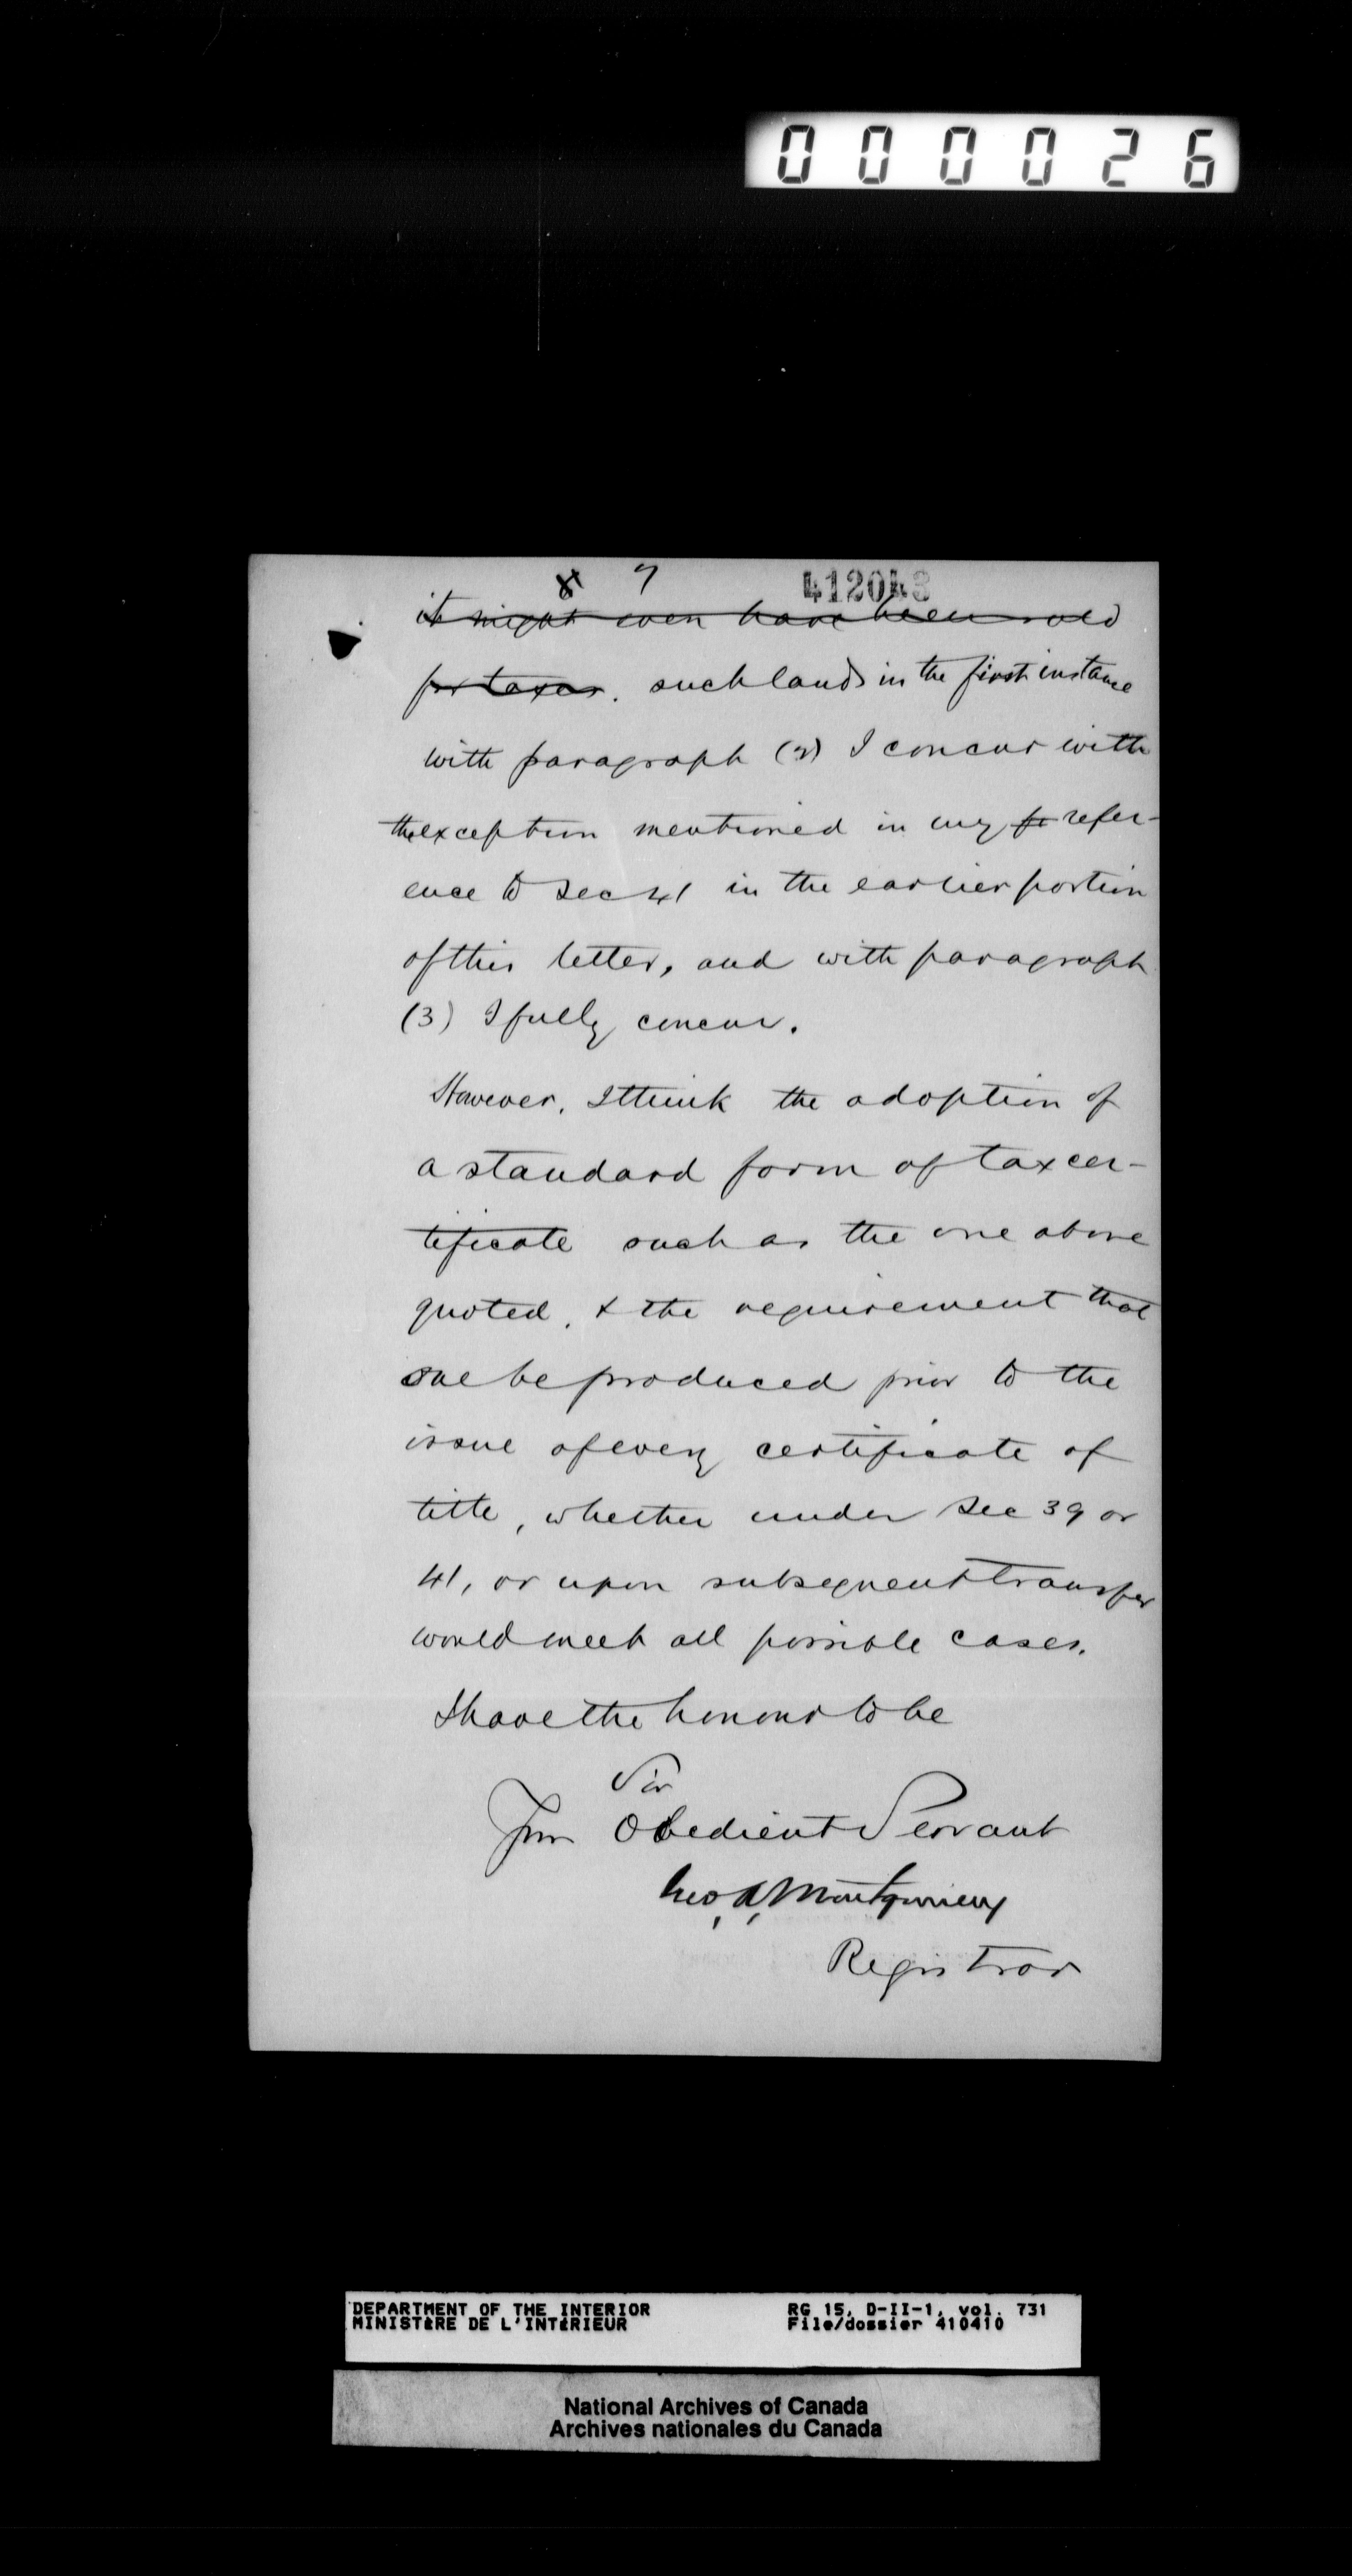 000026
8 7 412043
it might even have been sold
for taxes. such lands in the first instance
with paragraph (2) I concur with
the exception mentioned in my fr refer-
ence to Sec 41 in the earlier portion
of this letter, and with paragraph
(3) I fully concur.
However, I think the adoption of
a standard form of tax cer-
tificate such as the one above
quoted, & the requirement that
one be produced prior to the
issue of every certificate of
title, whether under Sec 39 or
41, or upon subsequent transfer
would meet all possible cases.
I have the honour to be
Sir
Your Obedient Servant
Geo. A. Montgomery
Registrar
DEPARTMENT OF THE INTERIOR RG 15, D-II-1, vol. 731
MINISTÈRE DE L'INTÉRIEUR File/dossier 410410
National Archives of Canada
Archives nationales du Canada